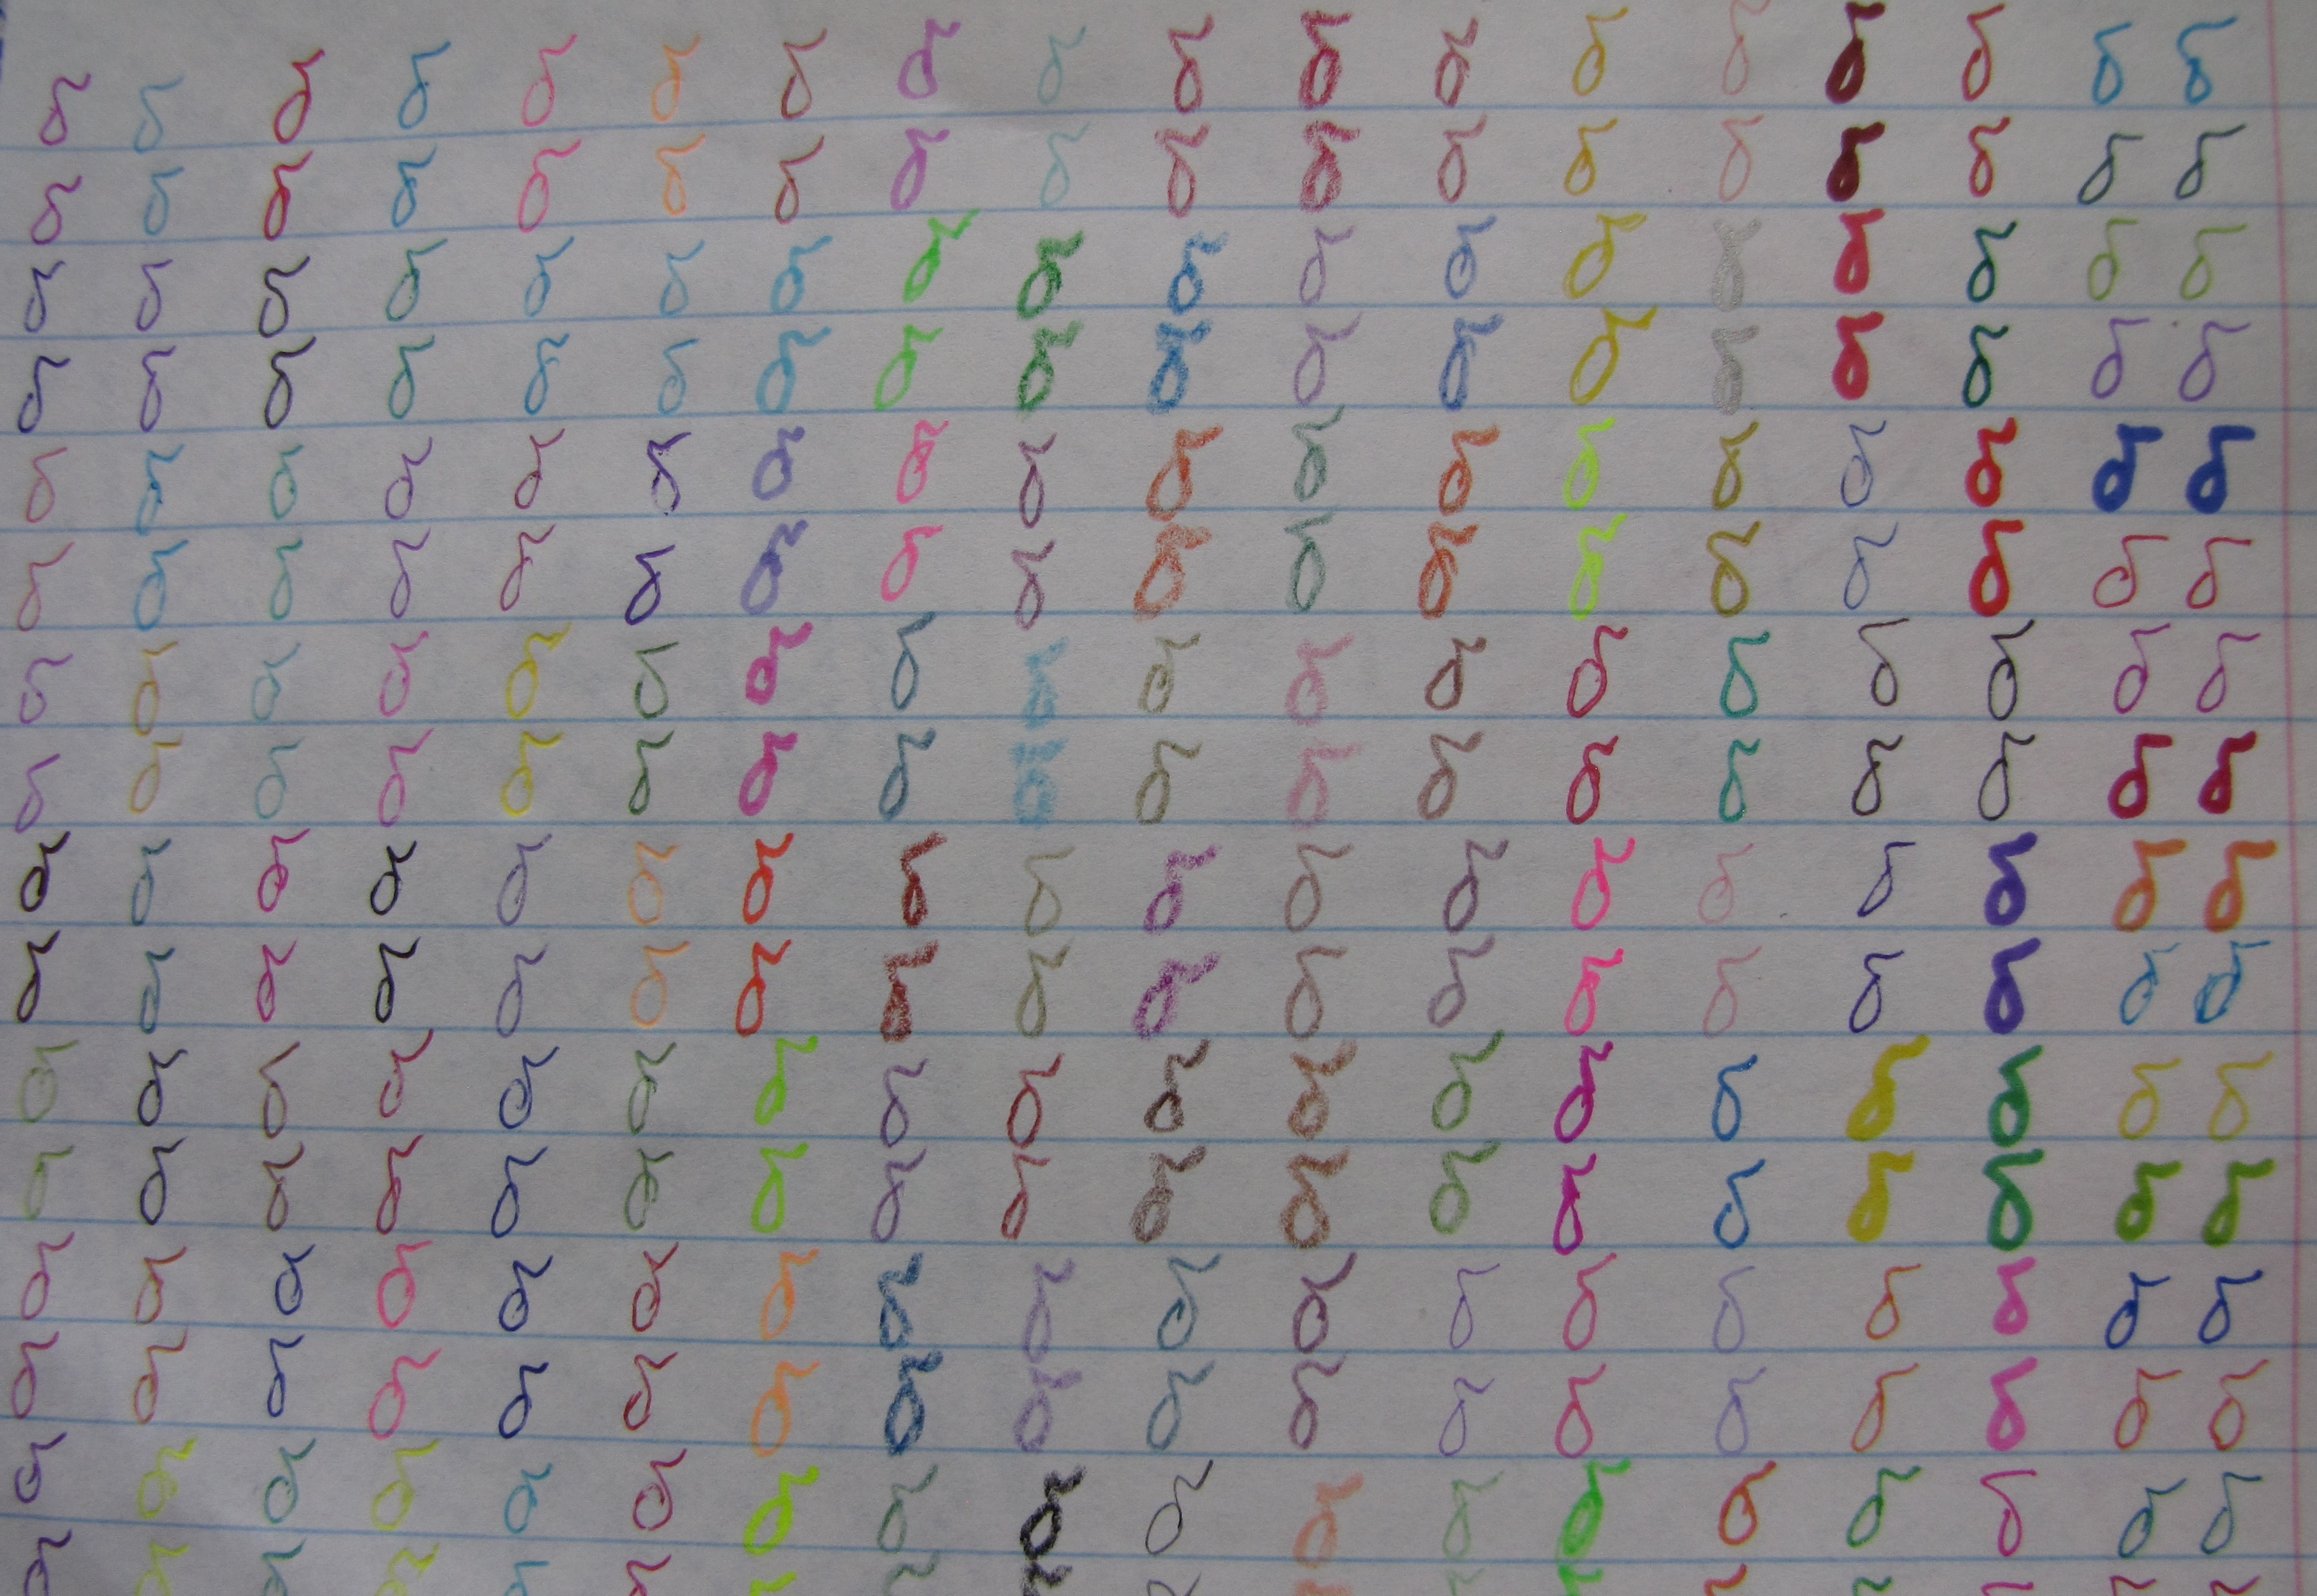 δ δ δ δ δ δ δ δ δ δ δ δ δ δ δ δ δ δ
δ δ δ δ δ δ δ δ δ δ δ δ δ δ δ δ δ δ
δ δ δ δ δ δ δ δ δ δ δ δ δ δ δ δ δ δ
δ δ δ δ δ δ δ δ δ δ δ δ δ δ δ δ δ δ
δ δ δ δ δ δ δ δ δ δ δ δ δ δ δ δ δ δ
δ δ δ δ δ δ δ δ δ δ δ δ δ δ δ δ δ δ
δ δ δ δ δ δ δ δ δ δ δ δ δ δ δ δ δ δ
δ δ δ δ δ δ δ δ δ δ δ δ δ δ δ δ δ δ
δ δ δ δ δ δ δ δ δ δ δ δ δ δ δ δ δ δ
δ δ δ δ δ δ δ δ δ δ δ δ δ δ δ δ δ δ
δ δ δ δ δ δ δ δ δ δ δ δ δ δ δ δ δ δ
δ δ δ δ δ δ δ δ δ δ δ δ δ δ δ δ δ δ
δ δ δ δ δ δ δ δ δ δ δ δ δ δ δ δ δ δ
δ δ δ δ δ δ δ δ δ δ δ δ δ δ δ δ δ δ
δ δ δ δ δ δ δ δ δ δ δ δ δ δ δ δ δ δ